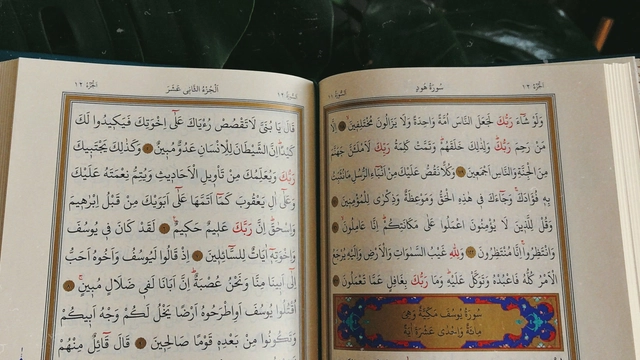 الجزء ١٢ سُورَةُ هُودٍ السورة ١١
وَلَوْ شَٓاءَ رَبُّكَ لَجَعَلَ النَّاسَ اُمَّةً وَاحِدَةً وَلَا يَزَالُونَ مُخْتَلِفِينَ اِلَّا
مَنْ رَحِمَ رَبُّكَ وَلِذٰلِكَ خَلَقَهُمْ وَتَمَّتْ كَلِمَةُ رَبِّكَ لَاَمْلَـَٔنَّ جَهَنَّمَ
مِنَ الْجِنَّةِ وَالنَّاسِ اَجْمَعِينَ وَكُلًّا نَقُصُّ عَلَيْكَ مِنْ اَنْبَٓاءِ الرُّسُلِ مَا نُثَبِّتُ
بِهِ فُؤَادَكَ وَجَٓاءَكَ فِي هٰذِهِ الْحَقُّ وَمَوْعِظَةٌ وَذِكْرٰى لِلْمُؤْمِنِينَ
وَقُلْ لِلَّذِينَ لَا يُؤْمِنُونَ اعْمَلُوا عَلٰى مَكَانَتِكُمْ اِنَّا عَامِلُونَ
وَانْتَظِرُوا اِنَّا مُنْتَظِرُونَ وَلِلّٰهِ غَيْبُ السَّمٰوَاتِ وَالْاَرْضِ وَاِلَيْهِ يُرْجَعُ
الْاَمْرُ كُلُّهُ فَاعْبُدْهُ وَتَوَكَّلْ عَلَيْهِ وَمَا رَبُّكَ بِغَافِلٍ عَمَّا تَعْمَلُونَ
سُورَةُ يُوسُفَ مَكِّيَّةٌ وَهِيَ
مِائَةٌ وَاِحْدٰى عَشْرَةَ اٰيَةً
السورة ١٢ اَلْجُزْءُ الثَّانِي عَشَرَ الجزء ١٢
قَالَ يَا بُنَيَّ لَا تَقْصُصْ رُءْيَاكَ عَلٰٓى اِخْوَتِكَ فَيَكِيدُوا لَكَ
كَيْدًا اِنَّ الشَّيْطَانَ لِلْاِنْسَانِ عَدُوٌّ مُبِينٌ وَكَذٰلِكَ يَجْتَبِيكَ
رَبُّكَ وَيُعَلِّمُكَ مِنْ تَأْوِيلِ الْاَحَادِيثِ وَيُتِمُّ نِعْمَتَهُ عَلَيْكَ
وَعَلٰٓى اٰلِ يَعْقُوبَ كَمَٓا اَتَمَّهَا عَلٰٓى اَبَوَيْكَ مِنْ قَبْلُ اِبْرٰهِيمَ
وَاِسْحٰقَ اِنَّ رَبَّكَ عَلِيمٌ حَكِيمٌ لَقَدْ كَانَ فِي يُوسُفَ
وَاِخْوَتِهِ اٰيَاتٌ لِلسَّٓائِلِينَ اِذْ قَالُوا لَيُوسُفُ وَاَخُوهُ اَحَبُّ
اِلٰٓى اَبِينَا مِنَّا وَنَحْنُ عُصْبَةٌ اِنَّ اَبَانَا لَفِي ضَلَالٍ مُبِينٍ
اُقْتُلُوا يُوسُفَ اَوِ اطْرَحُوهُ اَرْضًا يَخْلُ لَكُمْ وَجْهُ اَبِيكُمْ
وَتَكُونُوا مِنْ بَعْدِهِ قَوْمًا صَالِحِينَ قَالَ قَٓائِلٌ مِنْهُمْ